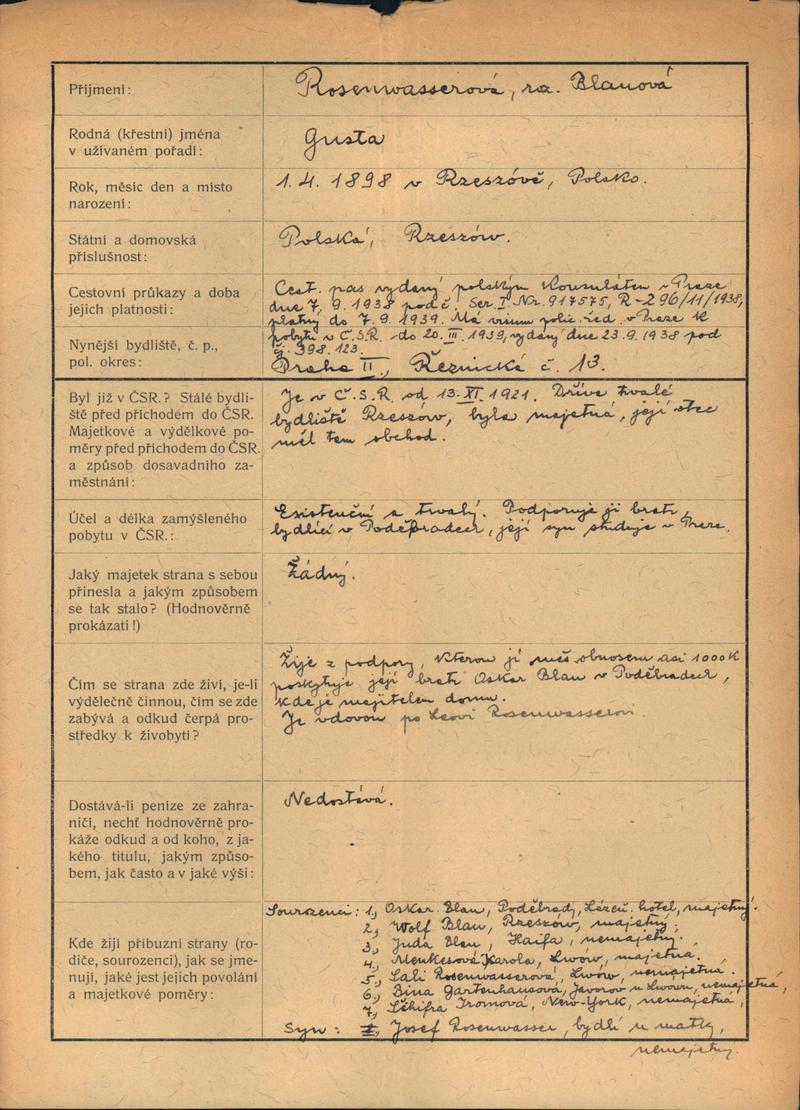 Příjmení:
Rosenwasserová, roz. Blauová
Rodná (křestní) jména
v užívaném pořadí:
Gusta
Rok, měsíc den a místo
narození:
1. 4. 1898 v Rzeszówě, Polsko.
Státní a domovská
příslušnost:
Polská, Rzeszów.
Cestovní průkazy a doba
jejich platnosti:
Cest. pas vydaný polským Konsulátem v Praze
dne 7. 9. 1938 pod č. Ser. I Nr. 917575, R-296/11/1938,
platný do 7. 9. 1939. Má visum polic. řed. v Praze k
pobytu v Č.S.R. do 20. III. 1939, vydaný dne 23. 9. 1938 pod
č. 398.123.
Nynější bydliště, č. p.,
pol. okres:
Praha II., Řeznická č. 13.
Byl již v ČSR.? Stálé bydli-
ště před příchodem do ČSR.
Majetkové a výdělkové po-
měry před příchodem do ČSR.
a způsob dosavadního za-
městnání:
Je v Č.S.R. od 13. XI. 1921. Dříve trvalé
bydliště Rzeszów, byla majetná, její otec
měl tam obchod.
Účel a délka zamýšleného
pobytu v ČSR.:
Existenční a trvalý. Podporuje ji bratr,
bydlící v Poděbradech, její syn studuje v Praze.
Jaký majetek strana s sebou
přinesla a jakým způsobem
se tak stalo? (Hodnověrně
prokázati!)
Žádný.
Čím se strana zde živí, je-li
výdělečně činnou, čím se zde
zabývá a odkud čerpá pro-
středky k živobytí?
Žije z podpory, kterou jí měs. obnosem asi 1000 K
poskytuje její bratr Oskar Blau v Poděbradech,
kde je majitelem domu.
Je vdovou po Leovi Rosenwasserovi.
Dostává-li peníze ze zahra-
ničí, nechť hodnověrně pro-
káže odkud a od koho, z ja-
kého titulu, jakým způso-
bem, jak často a v jaké výši:
Nedostává.
Kde žijí příbuzní strany (ro-
diče, sourozenci), jak se jme-
nují, jaké jest jejich povolání
a majetkové poměry:
Sourozenci: 1., Oskar Blau, Poděbrady, Lázeň. hotel, majetný.
2., Wolf Blau, Rzeszów, majetný.
3., Juda Blau, Haifa, nemajetný.
4., Menkesová Karola, Lwów, majetná.
5., Sali Rosenwasserová, Lwów, nemajetná.
6., Bina Gartenhausová, Javorov u Lwowu, nemajetná,
7., Tromová, New-York, nemajetná,
Syn: Josef Rosenwasser, bydlí u matky,
nemajetný.